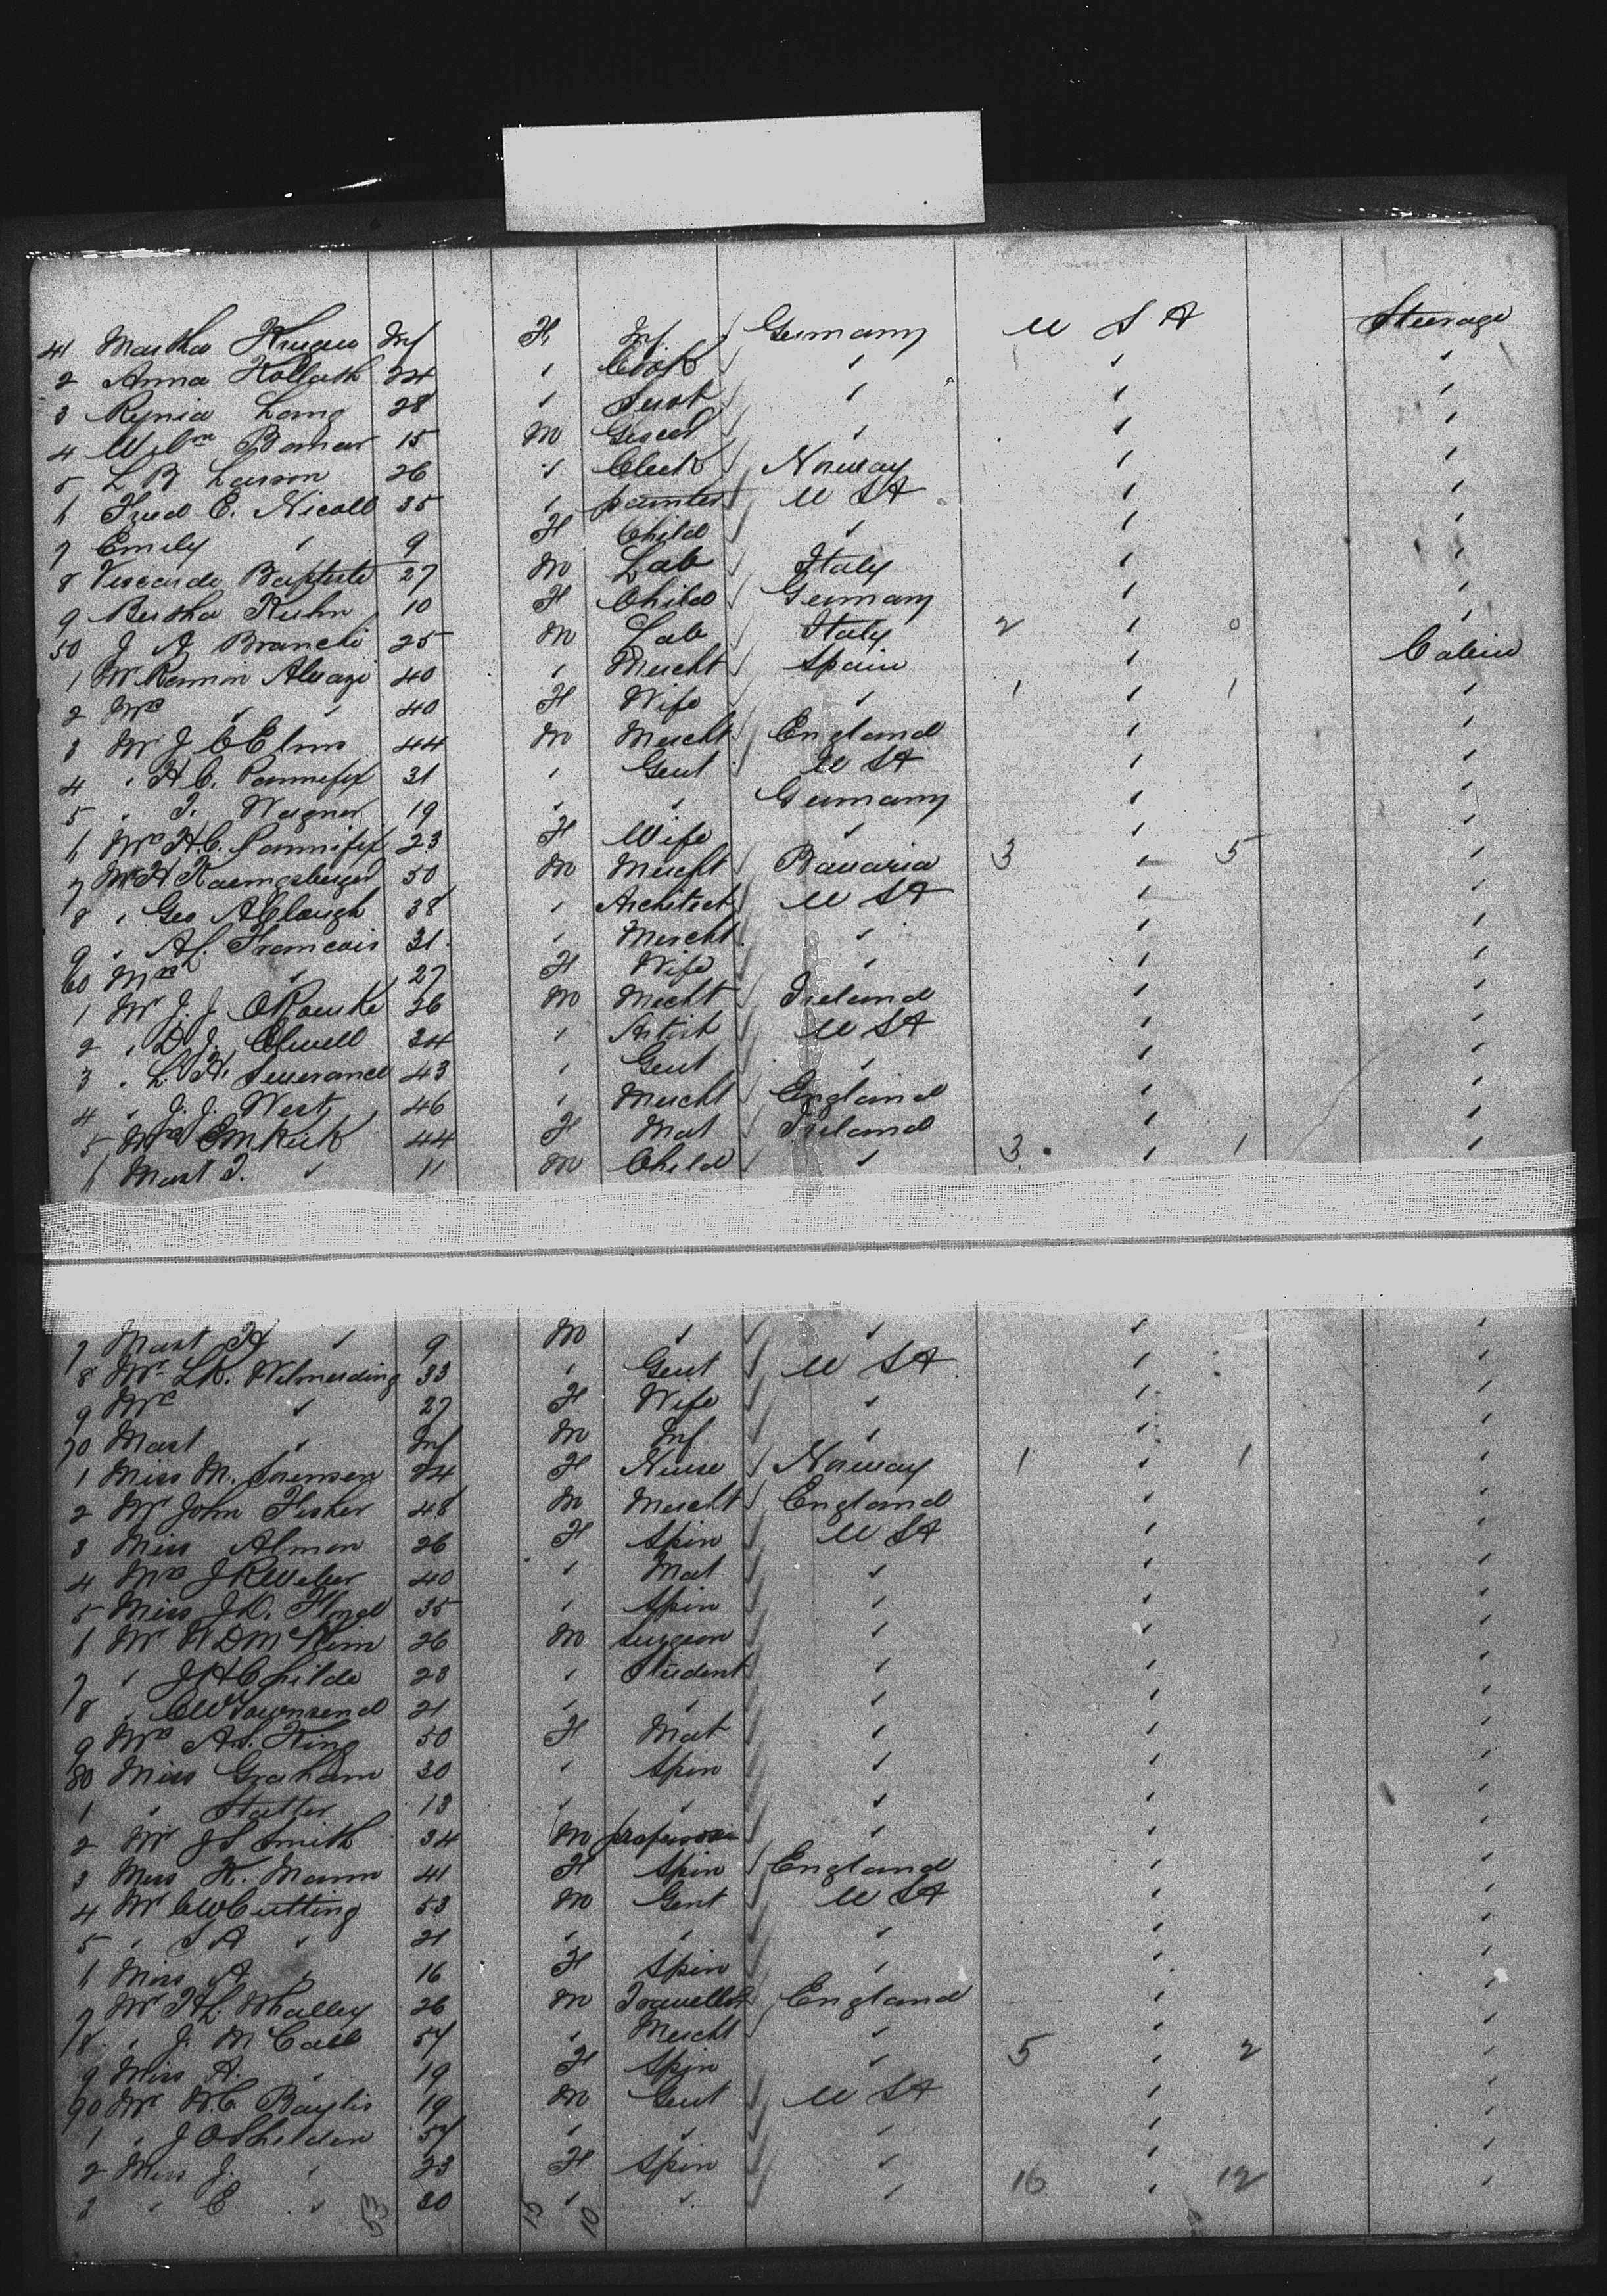 41 Martha Kruger Inf F Inf Germany U S A Steerage
2 Anna Kollath 24 " Cook " " "
3 Lang 28 " Servt " " "
4 Wilm 15 M Grocer " " "
5 L B Larson 26 " Clerk Norway " "
6 Fred E. Nicoll 35 " painter U S A " "
7 Emily " 9 F Child " " "
8 Baptiste 27 M Lab Italy " "
9 Bertha Kuhn 10 F Child Germany " "
50 J A Branchi 25 M Lab Italy 2 " 0 "
1 Mr Ramon 40 " Mercht Spain " Cabin
2 Mrs " " 40 F Wife " 1 " 1 "
3 Mr J C Elms 44 M Mercht England " "
4 " H C. 31 " Gent U S A " "
5 " T. Wagner 19 " " Germany " "
6 Mrs H. C. 23 F Wife " " "
7 Mr H 50 M Mercht Bavaria 3 " 5 "
8 " Geo A Clough 38 " Architect U S A " "
9 " A L. Francois 31 " Mercht " " "
60 Mrs " 27 F Wife " " "
1 Mr J. J. O'Rourke 26 M Mercht Ireland " "
2 " D J. Elwell 34 " Artist U S A " "
3 " L. H. Severance 43 " Gent " " "
4 " J. J. West 46 " Mercht England " "
5 Mrs 44 F Mat Ireland " "
6 Mast T. " 11 M Child " 3 " 1 "
7 Mast H " 9 M " " " "
8 Mr L K. Wilmerding 33 " Gent U S A " "
9 Mrs " 27 F Wife " " "
70 Mast " Inf M Inf " " "
1 Miss M. Sorensen 24 F Nurse Norway 1 " 1 "
2 Mr John Fisher 48 M Mercht England " "
3 Miss Almon 26 F Spin U S A " "
4 Mrs J R Weber 40 " Mat " " "
5 Miss J D. Floyd 35 " Spin " " "
6 Mr W D McKim 26 M surgeon " " "
7 " J H Childs 23 " Student " " "
8 " C W Townsend 21 " " " " "
9 Mrs A. S. King 50 F Mat " " "
80 Miss Graham 30 " Spin " " "
1 " 13 " " " " "
2 Mr J S Smith 34 M professor " " "
3 Miss K. Mann 41 F Spin England " "
4 Mr C W Cutting 53 M Gent U S A " "
5 " S A " 21 " " " " "
6 Miss A " 16 F Spin " " "
7 Mr H L. Whalley 26 M Traveller England " "
8 " J. McCall 57 " Mercht " " "
9 Miss A. " 19 F Spin " 5 " 2 "
90 Mr W. C. Baylis 19 M Gent U S A " "
1 " J O Sheldon 57 " " " " "
2 Miss J. " 23 F Spin " " "
3 " E " 20 " " " 16 " 12 "
53 15 10